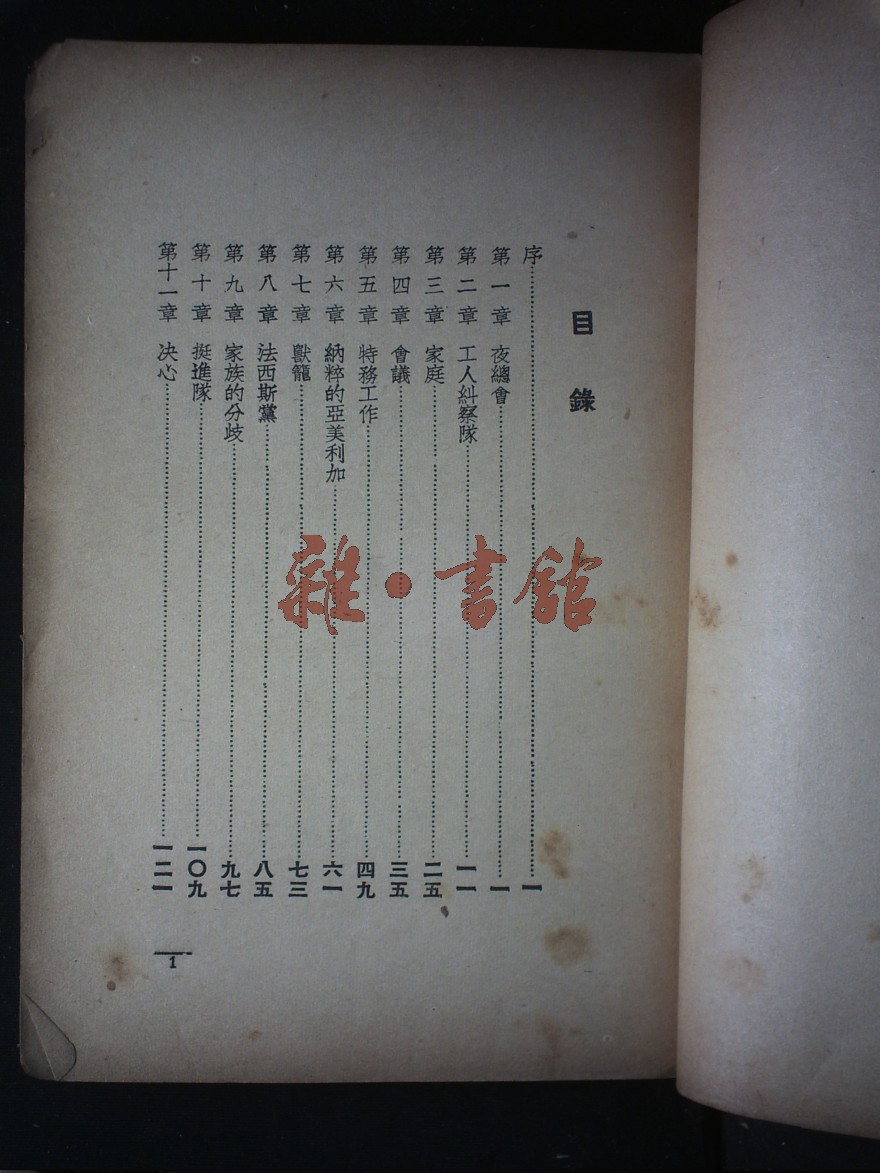 目錄
序……一
第一章 夜總會……一
第二章 工人糾察隊……一一
第三章 家庭……二五
第四章 會議……三五
第五章 特務工作……四九
第六章 納粹的亞美利加……六一
第七章 獸籠……七三
第八章 法西斯黨……八五
第九章 家族的分歧……九七
第十章 挺進隊……一〇九
第十一章 決心……一二一
1
雜·書館